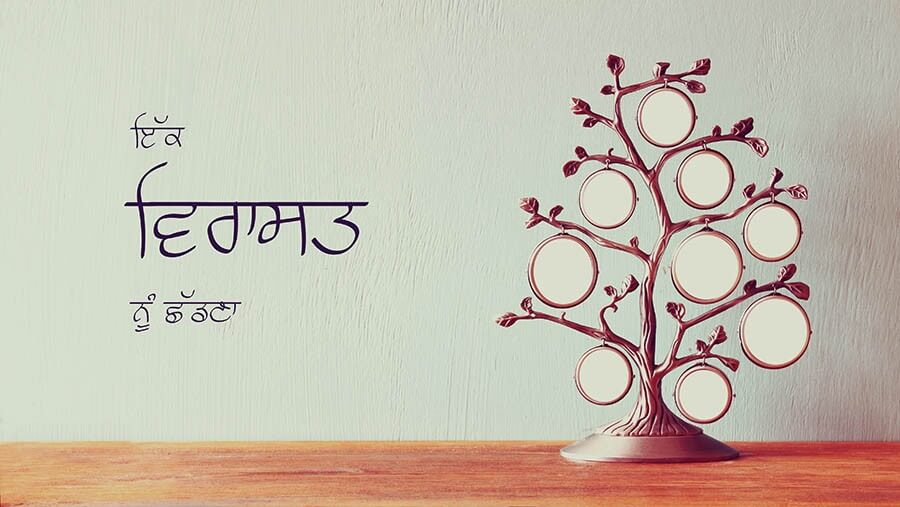 ਇੱਕ
ਵਿਰਾਸਤ
ਨੂੰ ਛੱਡਣਾ